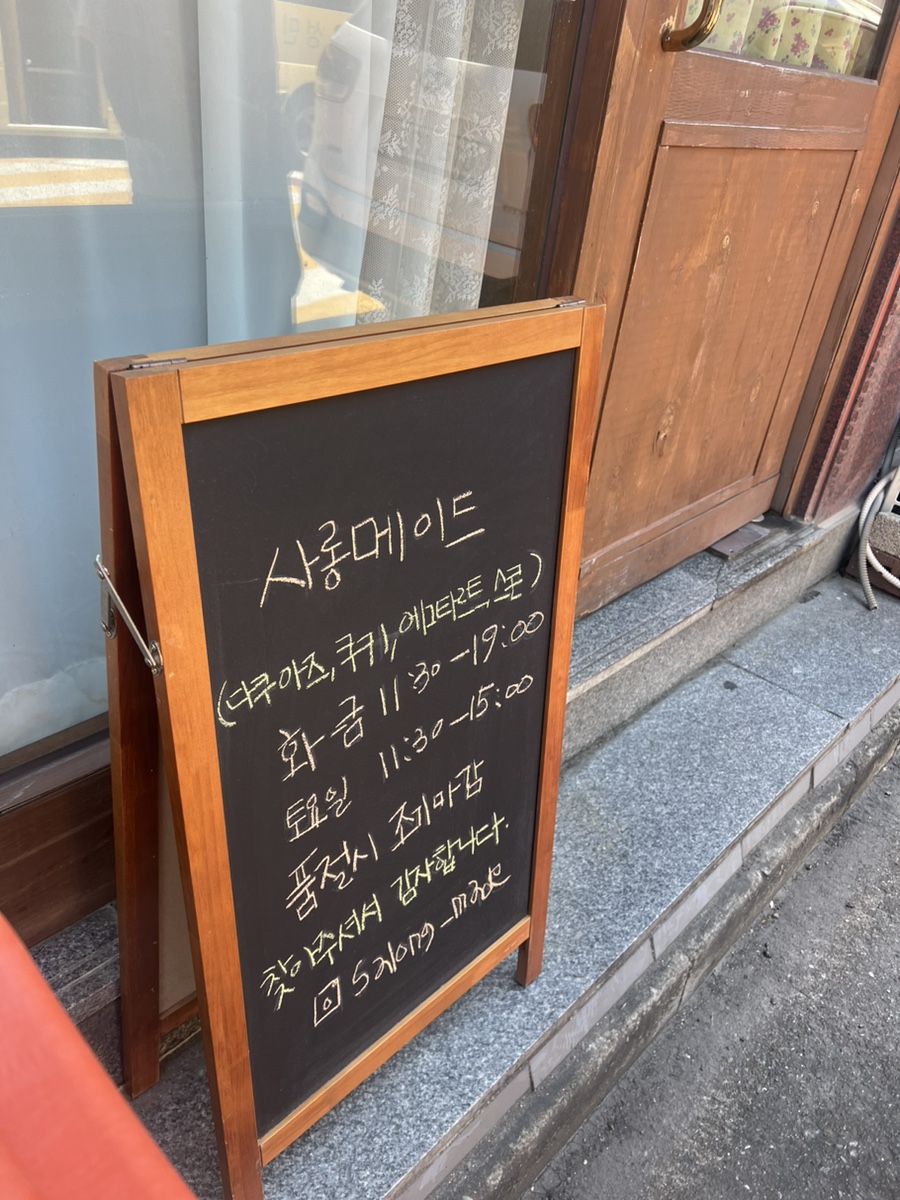 성민
사롱메이드
(다쿠아즈, 쿠키, 에그타르트, 스콘)
화-금 11:30-19:00
토요일 11:30-15:00
품절시 조기마감
찾아주셔서 감사합니다.
salong_made